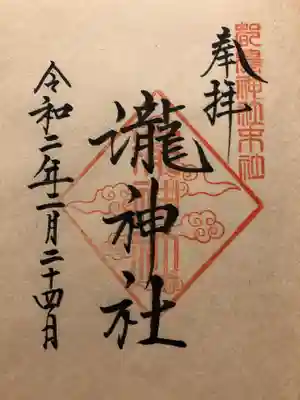 都農神社末社
奉拝
瀧神社
令和二年二月二十四日